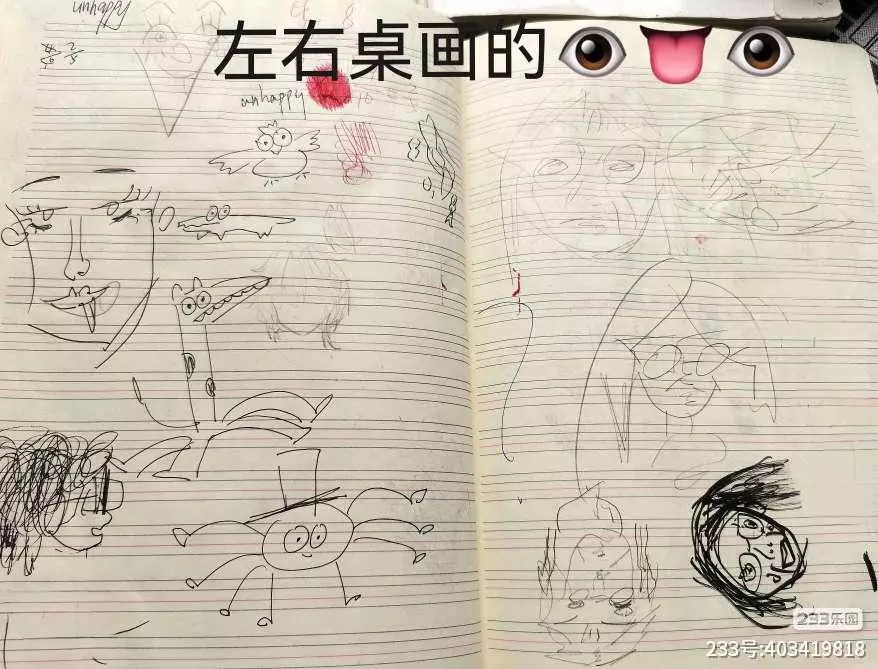 unhappy
左右桌画的
unhappy
233乐园
233号:403419818